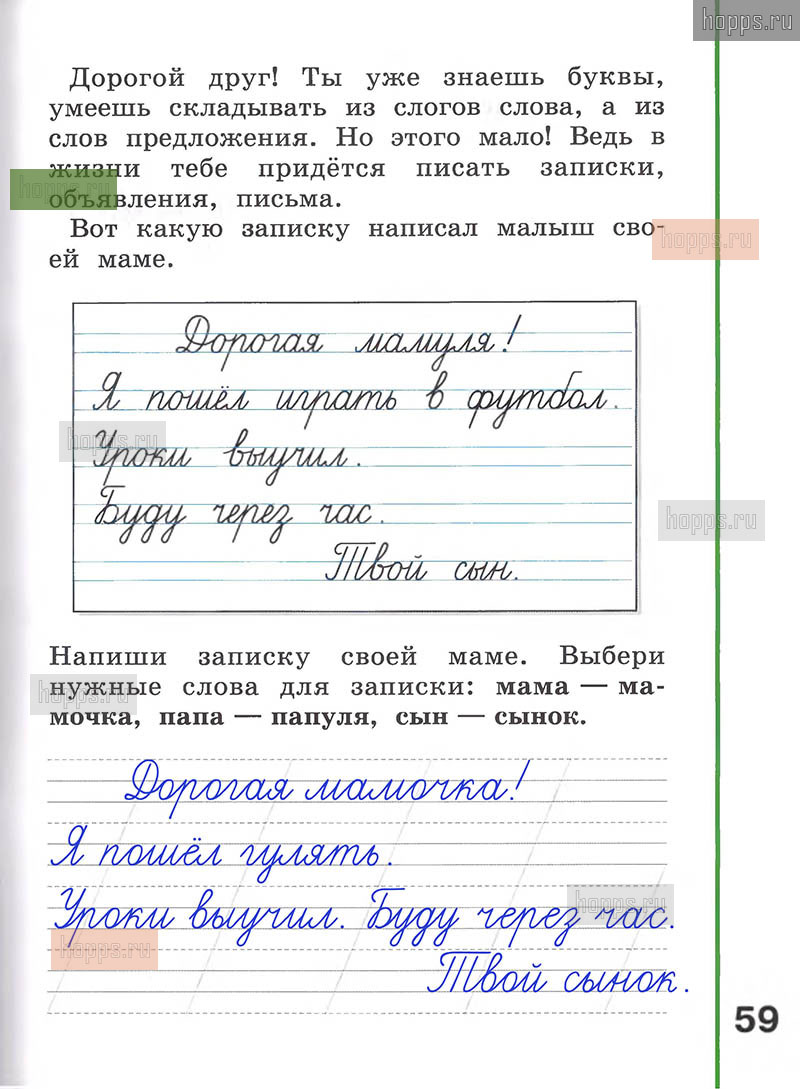 hopps.ru
Дорогой друг! Ты уже знаешь буквы,
умеешь складывать из слогов слова, а из
слов предложения. Но этого мало! Ведь в
жизни тебе придётся писать записки,
hopps.ru
объявления, письма.
Вот какую записку написал малыш сво-
hopps.ru
ей маме.
Дорогая мамуля!
Я пошёл играть в футбол.
hopps.ru
Уроки выучил.
Буду через час.
hopps.ru
Твой сын.
Напиши записку своей маме. Выбери
hopps.ru
нужные слова для записки: мама — ма-
мочка, папа — папуля, сын — сынок.
Дорогая мамочка!
Я пошёл гулять.
hopps.ru
Уроки выучил. Буду через час.
hopps.ru
Твой сынок.
59